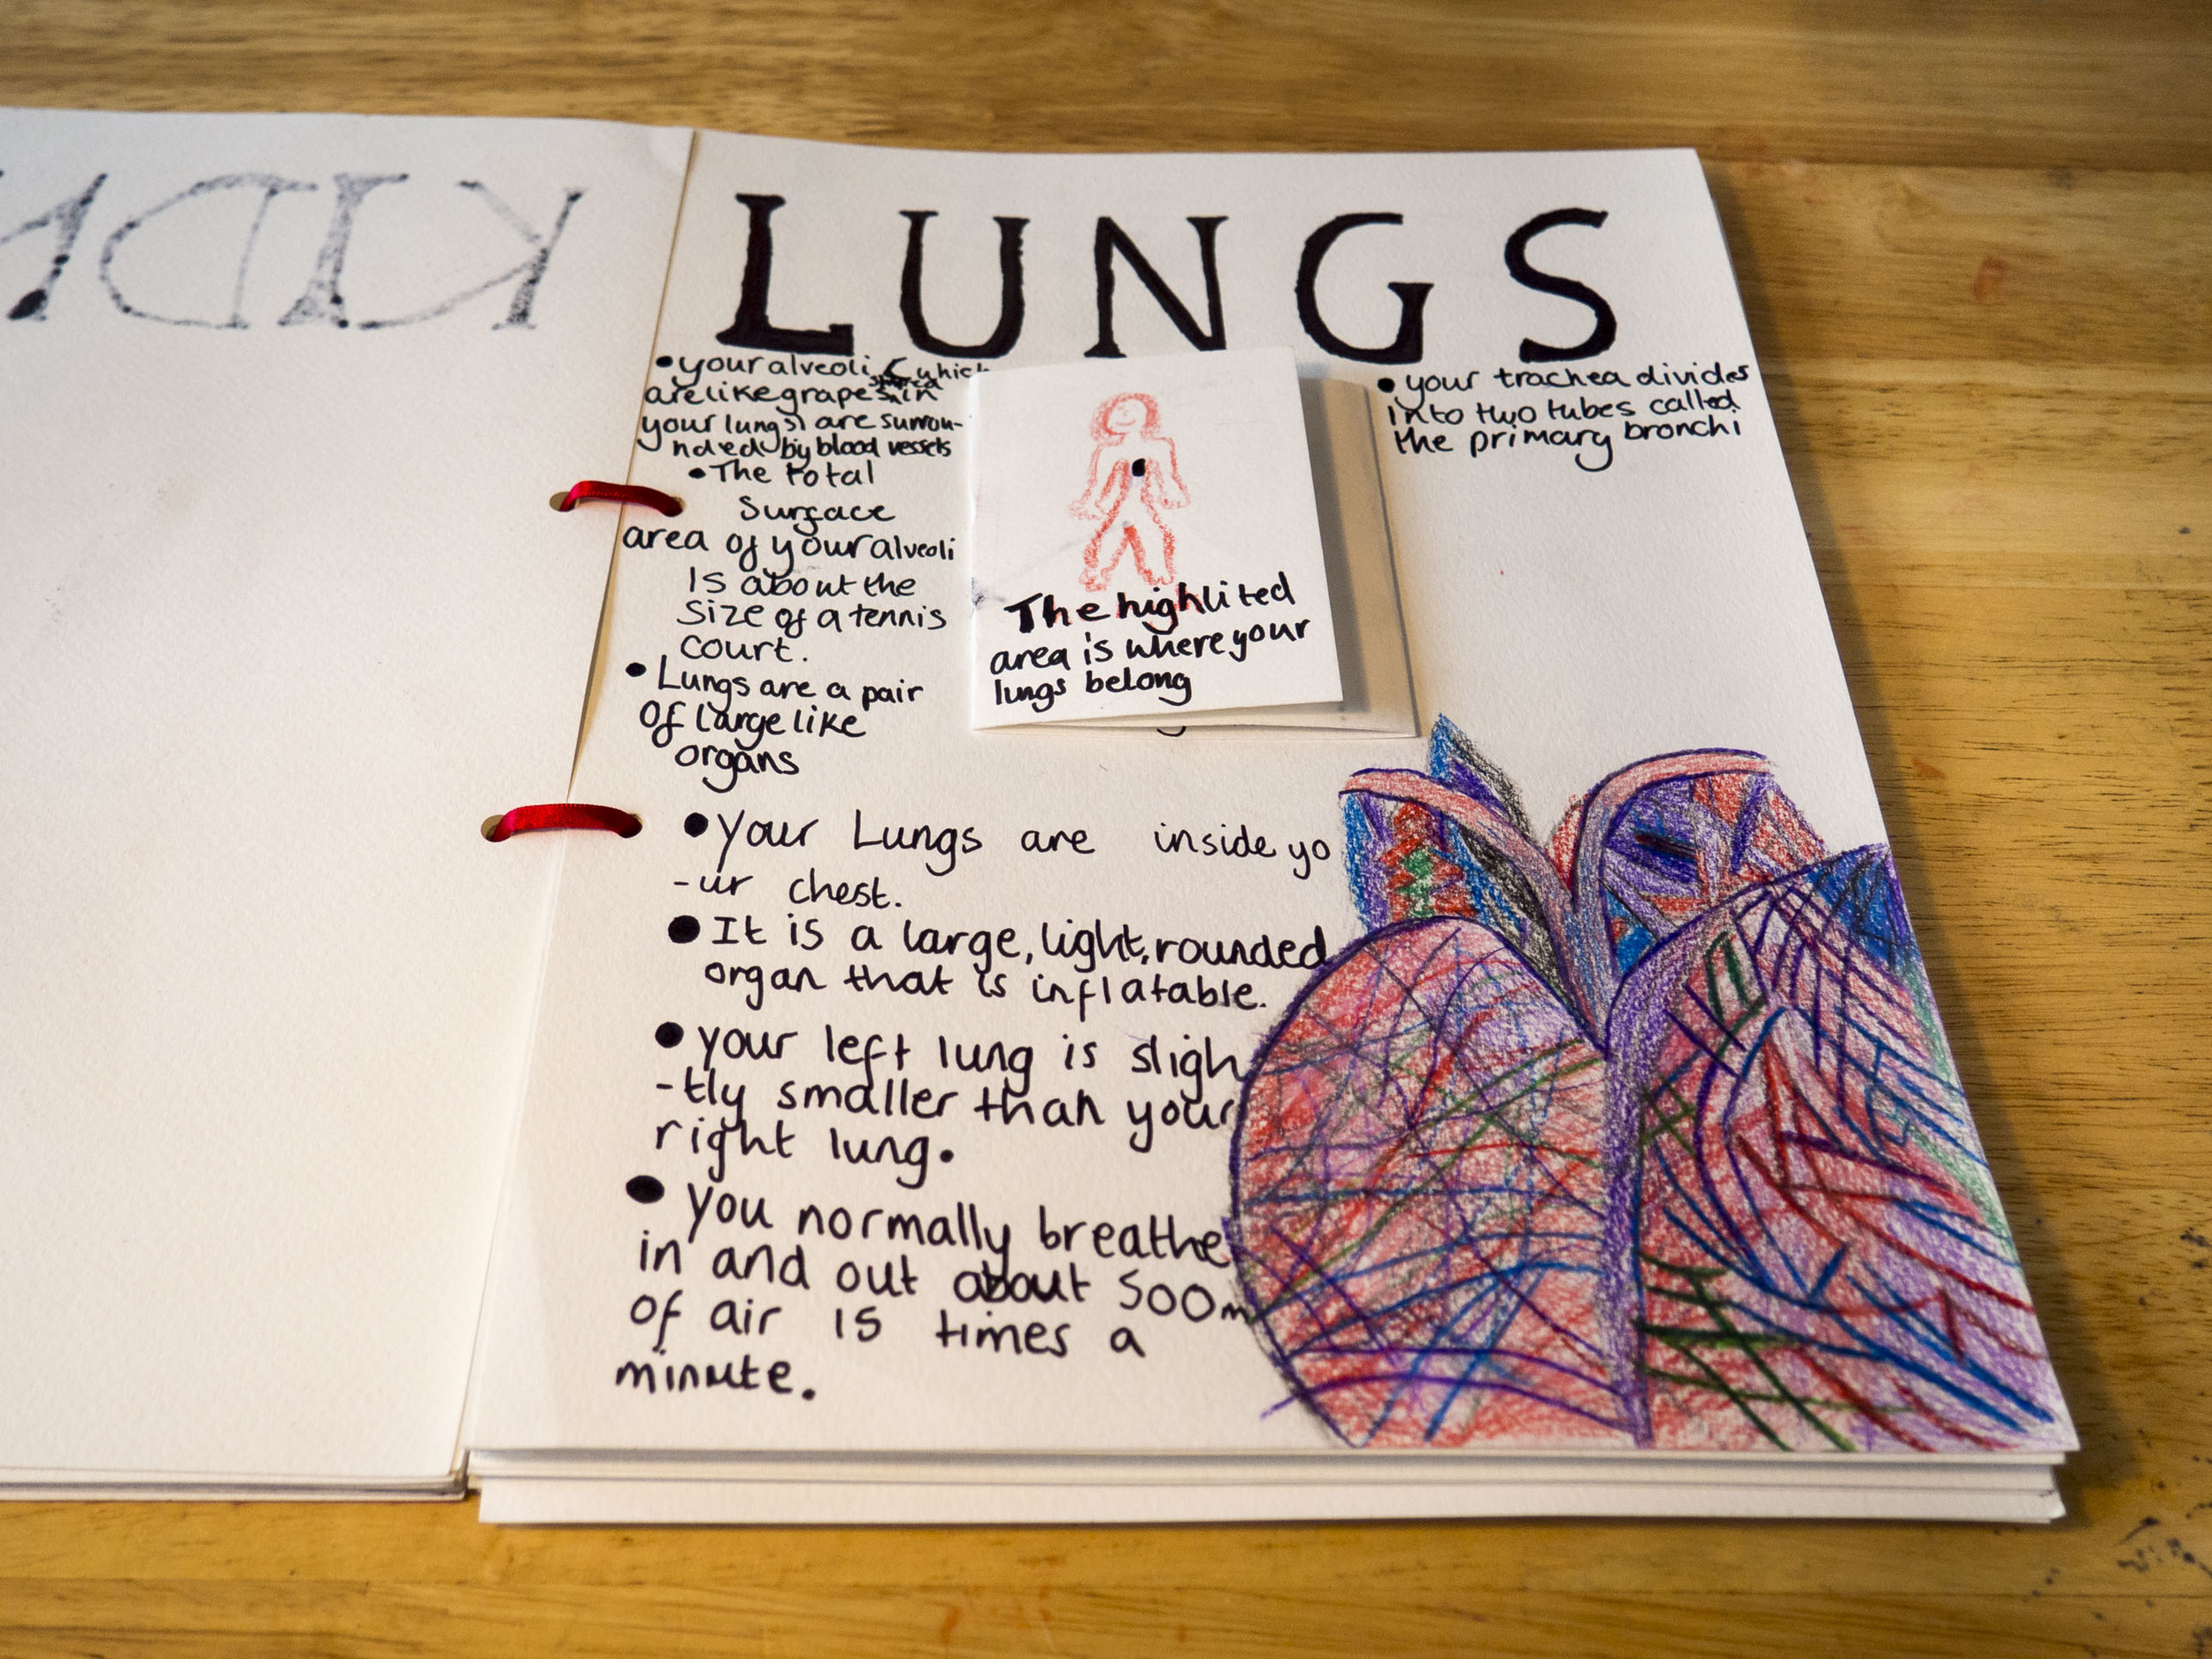 KIDN
LUNGS
• your alveoli (which
are like grapes in
stored
your lungs) are surrou-
nded by blood vessels
• The total
Surface
area of your alveoli
Is about the
size of a tennis
court.
• Lungs are a pair
Of large like
organs
The highlited
area is where your
lungs belong
• your trachea divides
into two tubes called
the primary bronchi
• Your Lungs are inside yo
-ur chest.
• It is a large, light, rounded
organ that is inflatable.
• your left lung is sligh
-tly smaller than your
right lung.
• you normally breathe
in and out about 500m
of air 15 times a
minute.